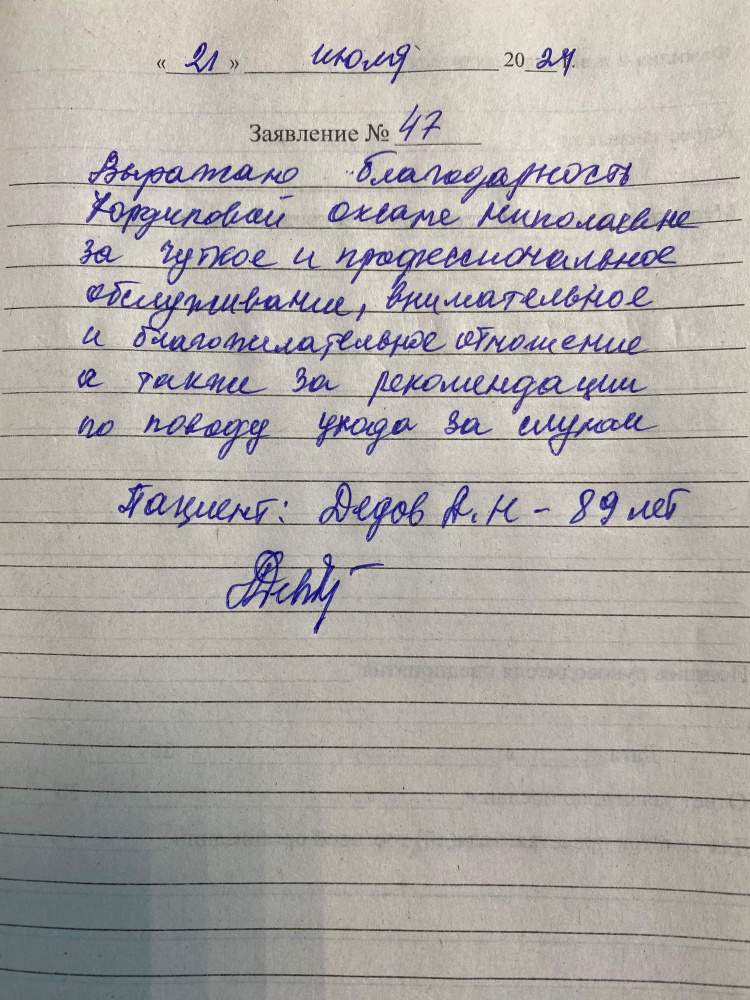 « 21 » июля 2024 г.
Заявление № 47
Выражаю благодарность
Оксане Николаевне
за чуткое и профессиональное
обслуживание, внимательное
и благожилательное отношение
а также за рекомендации
по поводу ухода за слухом
Пациент: Дедов А.Н - 89 лет